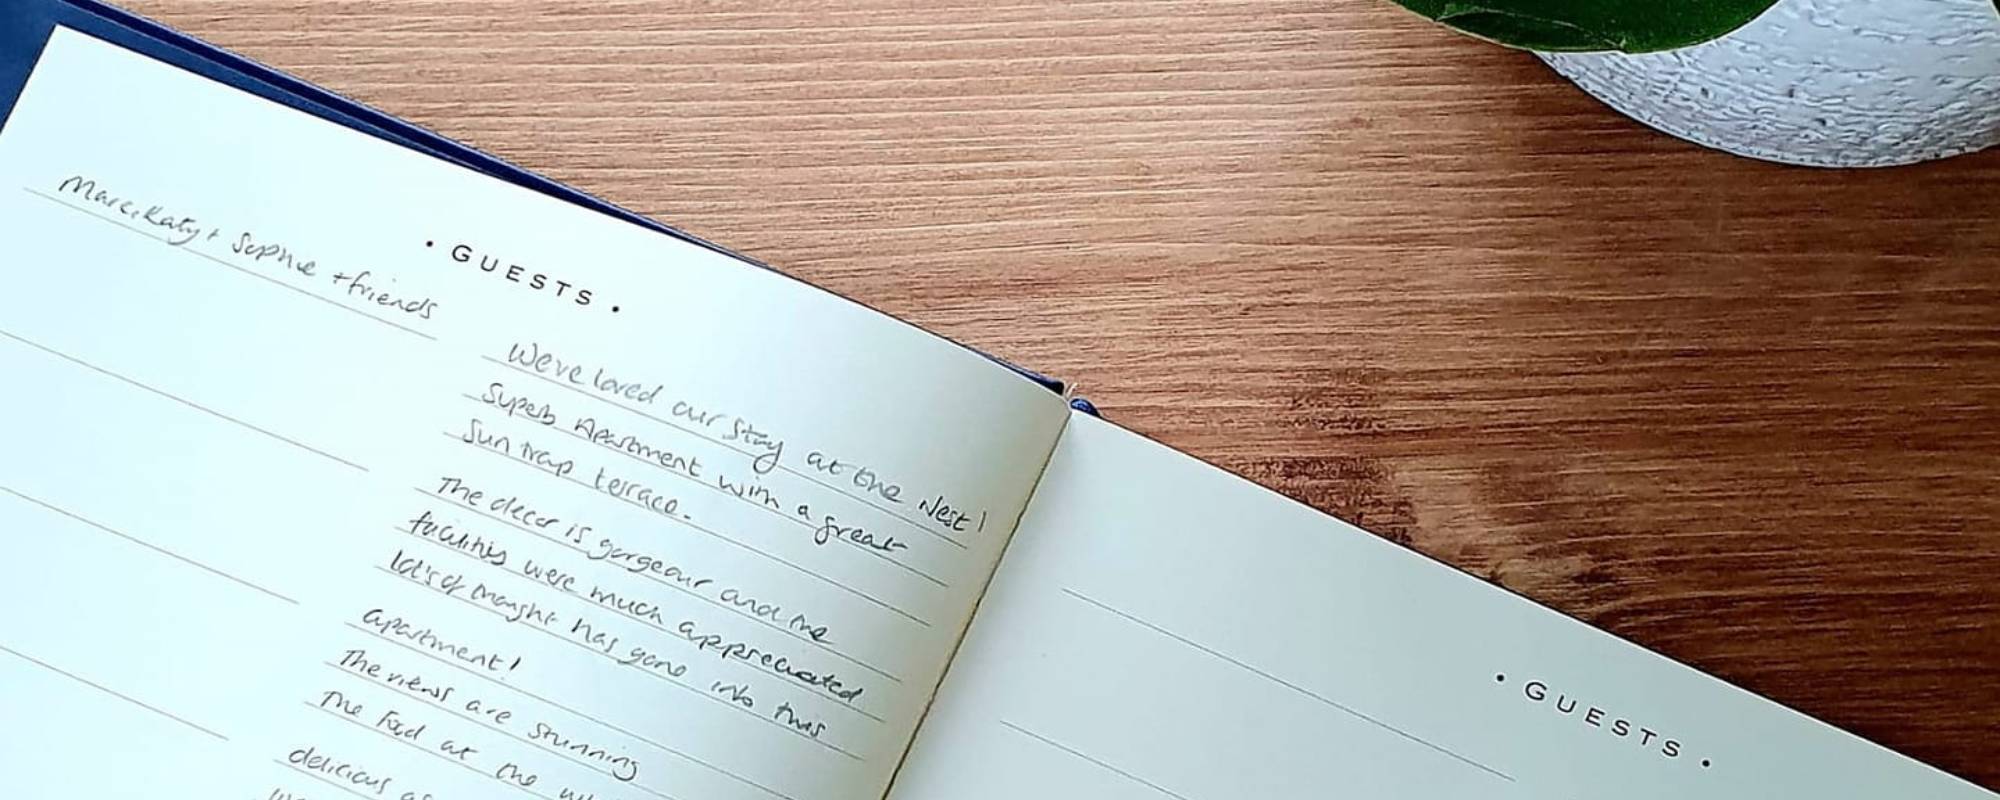 • GUESTS •
Marc, Katy + Sophie + friends
We've loved our stay at the Nest!
Superb Apartment with a great
Sun trap terrace.
The decor is gorgeous and the
facilities were much appreciated
lot's of thought has gone into this
apartment!
The views are stunning
The Food at the
delicious as
• GUESTS •